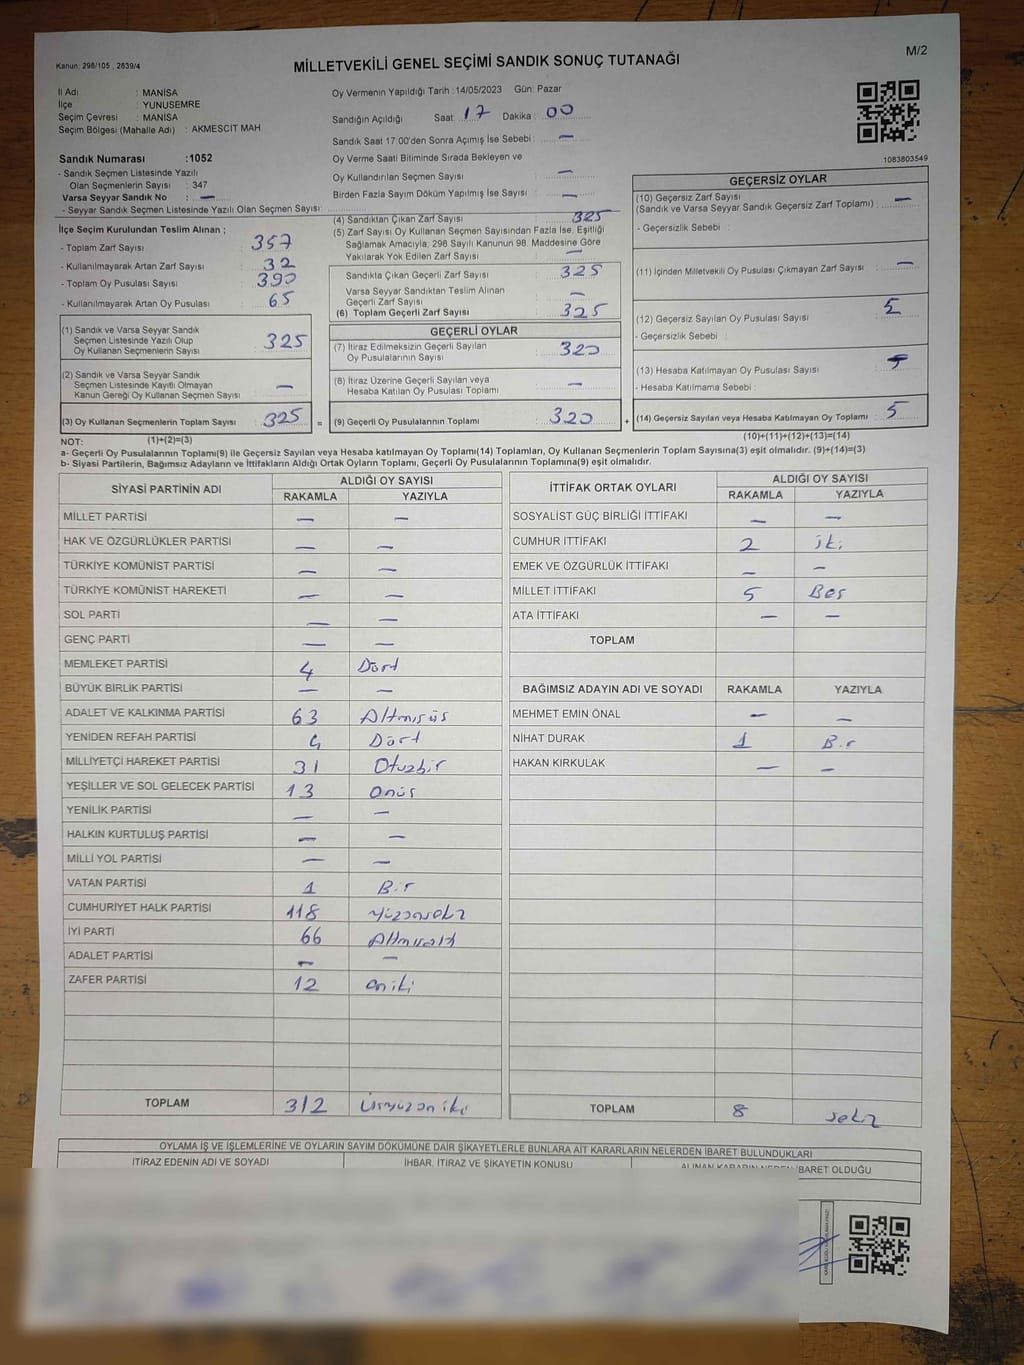 Kanun: 298/105 , 2839/4
MİLLETVEKİLİ GENEL SEÇİMİ SANDIK SONUÇ TUTANAĞI
M/2
İl Adı : MANİSA
İlçe : YUNUSEMRE
Seçim Çevresi : MANİSA
Seçim Bölgesi (Mahalle Adı) : AKMESCİT MAH
Sandık Numarası :1052
- Sandık Seçmen Listesinde Yazılı
Olan Seçmenlerin Sayısı : 347
Varsa Seyyar Sandık No : —
- Seyyar Sandık Seçmen Listesinde Yazılı Olan Seçmen Sayısı:
Oy Vermenin Yapıldığı Tarih :14/05/2023 Gün: Pazar
Sandığın Açıldığı Saat: 17 Dakika : 00
Sandık Saat 17:00'den Sonra Açımış İse Sebebi : —
Oy Verme Saati Bitiminde Sırada Bekleyen ve
Oy Kullandırılan Seçmen Sayısı : —
Birden Fazla Sayım Döküm Yapılmış İse Sayısı : —
1083803549
İlçe Seçim Kurulundan Teslim Alınan ;
- Toplam Zarf Sayısı : 357
- Kullanılmayarak Artan Zarf Sayısı : 32
- Toplam Oy Pusulası Sayısı : 390
- Kullanılmayarak Artan Oy Pusulası : 65
(1) Sandık ve Varsa Seyyar Sandık
Seçmen Listesinde Yazılı Olup
Oy Kullanan Seçmenlerin Sayısı : 325
(2) Sandık ve Varsa Seyyar Sandık
Seçmen Listesinde Kayıtlı Olmayan
Kanun Gereği Oy Kullanan Seçmen Sayısı : —
(3) Oy Kullanan Seçmenlerin Toplam Sayısı : 325 =
(4) Sandıktan Çıkan Zarf Sayısı : 325
(5) Zarf Sayısı Oy Kullanan Seçmen Sayısından Fazla İse, Eşitliği
Sağlamak Amacıyla; 298 Sayılı Kanunun 98. Maddesine Göre
Yakılarak Yok Edilen Zarf Sayısı : —
Sandıkta Çıkan Geçerli Zarf Sayısı : 325
Varsa Seyyar Sandıktan Teslim Alınan
Geçerli Zarf Sayısı : —
(6) Toplam Geçerli Zarf Sayısı : 325
GEÇERLİ OYLAR
(7) İtiraz Edilmeksizin Geçerli Sayılan
Oy Pusulalarının Sayısı : 320
(8) İtiraz Üzerine Geçerli Sayılan veya
Hesaba Katılan Oy Pusulası Toplamı : —
(9) Geçerli Oy Pusulalarının Toplamı : 320 +
GEÇERSİZ OYLAR
(10) Geçersiz Zarf Sayısı
(Sandık ve Varsa Seyyar Sandık Geçersiz Zarf Toplamı) : —
- Geçersizlik Sebebi :
(11) İçinden Milletvekili Oy Pusulası Çıkmayan Zarf Sayısı : —
(12) Geçersiz Sayılan Oy Pusulası Sayısı : 5
- Geçersizlik Sebebi :
(13) Hesaba Katılmayan Oy Pusulası Sayısı :
- Hesaba Katılmama Sebebi :
(14) Geçersiz Sayılan veya Hesaba Katılmayan Oy Toplamı : 5
NOT: (1)+(2)=(3)
(10)+(11)+(12)+(13)=(14)
a- Geçerli Oy Pusulalarının Toplamı(9) ile Geçersiz Sayılan veya Hesaba katılmayan Oy Toplamı(14) Toplamları, Oy Kullanan Seçmenlerin Toplam Sayısına(3) eşit olmalıdır. (9)+(14)=(3)
b- Siyasi Partilerin, Bağımsız Adayların ve İttifakların Aldığı Ortak Oyların Toplamı, Geçerli Oy Pusulalarının Toplamına(9) eşit olmalıdır.
SİYASİ PARTİNİN ADI ALDIĞI OY SAYISI
RAKAMLA YAZIYLA
MİLLET PARTİSİ — —
HAK VE ÖZGÜRLÜKLER PARTİSİ — —
TÜRKİYE KOMÜNİST PARTİSİ — —
TÜRKİYE KOMÜNİST HAREKETİ — —
SOL PARTİ — —
GENÇ PARTİ — —
MEMLEKET PARTİSİ 4 Dört
BÜYÜK BİRLİK PARTİSİ — —
ADALET VE KALKINMA PARTİSİ 63 Altmışüç
YENİDEN REFAH PARTİSİ 4 Dört
MİLLİYETÇİ HAREKET PARTİSİ 31 Otuzbir
YEŞİLLER VE SOL GELECEK PARTİSİ 13 Onüç
YENİLİK PARTİSİ — —
HALKIN KURTULUŞ PARTİSİ — —
MİLLİ YOL PARTİSİ — —
VATAN PARTİSİ 1 Bir
CUMHURİYET HALK PARTİSİ 118 yüzonsekiz
İYİ PARTİ 66 Altmışaltı
ADALET PARTİSİ — —
ZAFER PARTİSİ 12 oniki
TOPLAM 312 Üçyüzoniki
İTTİFAK ORTAK OYLARI ALDIĞI OY SAYISI
RAKAMLA YAZIYLA
SOSYALİST GÜÇ BİRLİĞİ İTTİFAKI — —
CUMHUR İTTİFAKI 2 iki
EMEK VE ÖZGÜRLÜK İTTİFAKI — —
MİLLET İTTİFAKI 5 Beş
ATA İTTİFAKI — —
TOPLAM
BAĞIMSIZ ADAYIN ADI VE SOYADI RAKAMLA YAZIYLA
MEHMET EMİN ÖNAL — —
NİHAT DURAK 1 Bir
HAKAN KIRKULAK — —
TOPLAM 8 sekiz
OYLAMA İŞ VE İŞLEMLERİNE VE OYLARIN SAYIM DÖKÜMÜNE DAİR ŞİKAYETLERLE BUNLARA AİT KARARLARIN NELERDEN İBARET BULUNDUKLARI
İTİRAZ EDENİN ADI VE SOYADI İHBAR, İTİRAZ VE ŞİKAYETİN KONUSU ALINAN KARARIN NEDEN İBARET OLDUĞU